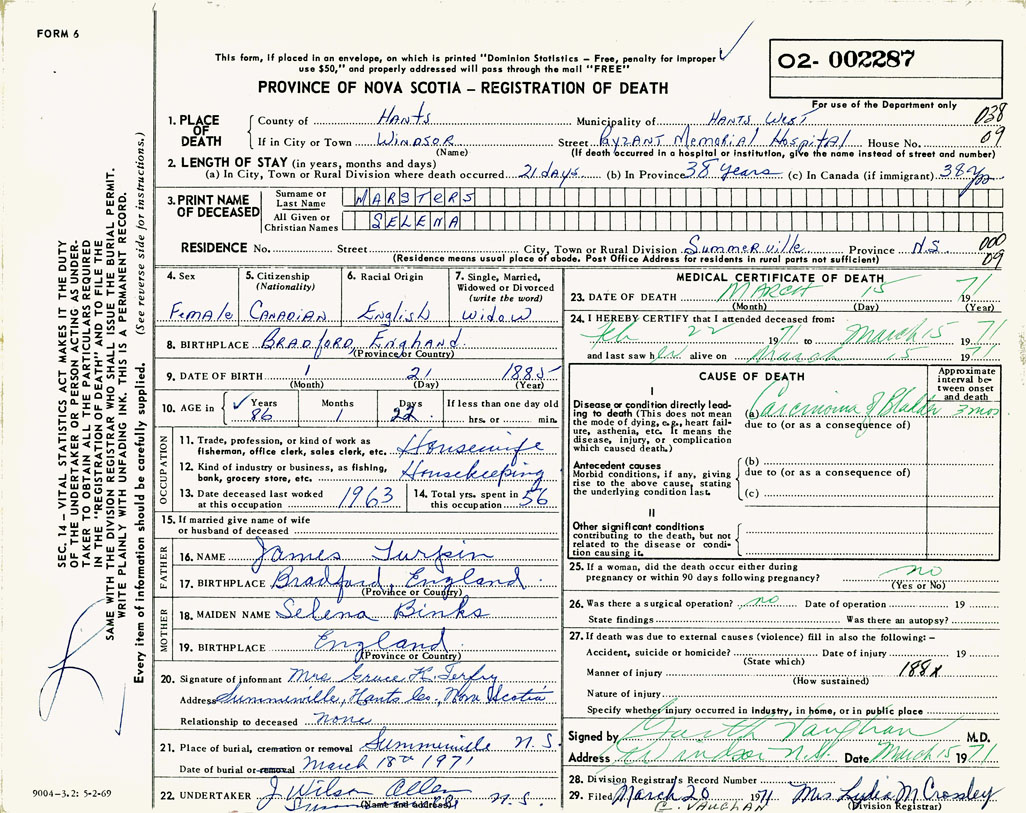 FORM 6
This form, if placed in an envelope, on which is printed "Dominion Statistics – Free, penalty for improper
use $50," and properly addressed will pass through the mail "FREE"
02- 002287
PROVINCE OF NOVA SCOTIA – REGISTRATION OF DEATH
For use of the Department only
038
09
1. PLACE OF DEATH
County of HANTS Municipality of HANTS WEST
If in City or Town WINDSOR Street Payzant Memorial Hospital House No.
(Name) (If death occurred in a hospital or institution, give the name instead of street and number)
2. LENGTH OF STAY (in years, months and days)
(a) In City, Town or Rural Division where death occurred 21 days (b) In Province 38 years (c) In Canada (if immigrant) 38 yrs
3. PRINT NAME OF DECEASED
Surname or Last Name MARSTERS
All Given or Christian Names SELENA
000
09
RESIDENCE No. Street City, Town or Rural Division Summerville Province N.S.
(Residence means usual place of abode. Post Office Address for residents in rural parts not sufficient)
4. Sex
Female
5. Citizenship
(Nationality)
CANADIAN
6. Racial Origin
English
7. Single, Married,
Widowed or Divorced
(write the word)
Widow
8. BIRTHPLACE BRADFORD, England.
(Province or Country)
9. DATE OF BIRTH 1 21 1885
(Month) (Day) (Year)
10. AGE in Years Months Days If less than one day old
86 1 22 hrs. or min.
OCCUPATION
11. Trade, profession, or kind of work as
fisherman, office clerk, sales clerk, etc. Housewife
12. Kind of industry or business, as fishing,
bank, grocery store, etc. Housekeeping
13. Date deceased last worked
at this occupation 1963
14. Total yrs. spent in
this occupation 56
15. If married give name of wife
or husband of deceased
FATHER
16. NAME James Turpin
17. BIRTHPLACE Bradford, England
(Province or Country)
MOTHER
18. MAIDEN NAME Selena Binks
19. BIRTHPLACE England
(Province or Country)
20. Signature of informant Mrs Grace K.
Address Summerville, Hants Co., Nova Scotia
Relationship to deceased none
21. Place of burial, cremation or removal Summerville N.S.
Date of burial or removal March 18th 1971
22. UNDERTAKER J. Wilson Allen
(Name and address) N.S.
MEDICAL CERTIFICATE OF DEATH
23. DATE OF DEATH MARCH 15 1971
(Month) (Day) (Year)
24. I HEREBY CERTIFY that I attended deceased from:
Feb 22 1971 to March 15 1971
and last saw her alive on March 15 1971
CAUSE OF DEATH
Approximate
interval be-
tween onset
and death
I
Disease or condition directly lead-
ing to death (This does not mean
the mode of dying, e.g., heart fail-
ure, asthenia, etc. It means the
disease, injury, or complication
which caused death.)
(a) Carcinoma of Bladder 3 mos
due to (or as a consequence of)
Antecedent causes
Morbid conditions, if any, giving
rise to the above cause, stating
the underlying condition last.
(b)
due to (or as a consequence of)
(c)
II
Other significant conditions
contributing to the death, but not
related to the disease or condi-
tion causing it.
25. If a woman, did the death occur either during
pregnancy or within 90 days following pregnancy? no
(Yes or No)
26. Was there a surgical operation? no Date of operation 19
State findings Was there an autopsy?
27. If death was due to external causes (violence) fill in also the following: –
Accident, suicide or homicide? Date of injury 19
(State which)
Manner of injury 188X
(How sustained)
Nature of injury
Specify whether injury occurred in industry, in home, or in public place
Signed by Garth Vaughan M.D.
Address Windsor N.S. Date March 15 1971
28. Division Registrar's Record Number
29. Filed March 20 1971 Mrs. Lydia M Crossley
G. VAUGHAN (Division Registrar)
SEC. 14 – VITAL STATISTICS ACT MAKES IT THE DUTY
OF THE UNDERTAKER OR PERSON ACTING AS UNDER-
TAKER TO OBTAIN ALL THE PARTICULARS REQUIRED
IN THE "REGISTRATION OF DEATH" AND TO FILE THE
SAME WITH THE DIVISION REGISTRAR WHO SHALL ISSUE THE BURIAL PERMIT.
WRITE PLAINLY WITH UNFADING INK. THIS IS A PERMANENT RECORD.
Every item of information should be carefully supplied. (See reverse side for instructions.)
9004-3.2: 5-2-69